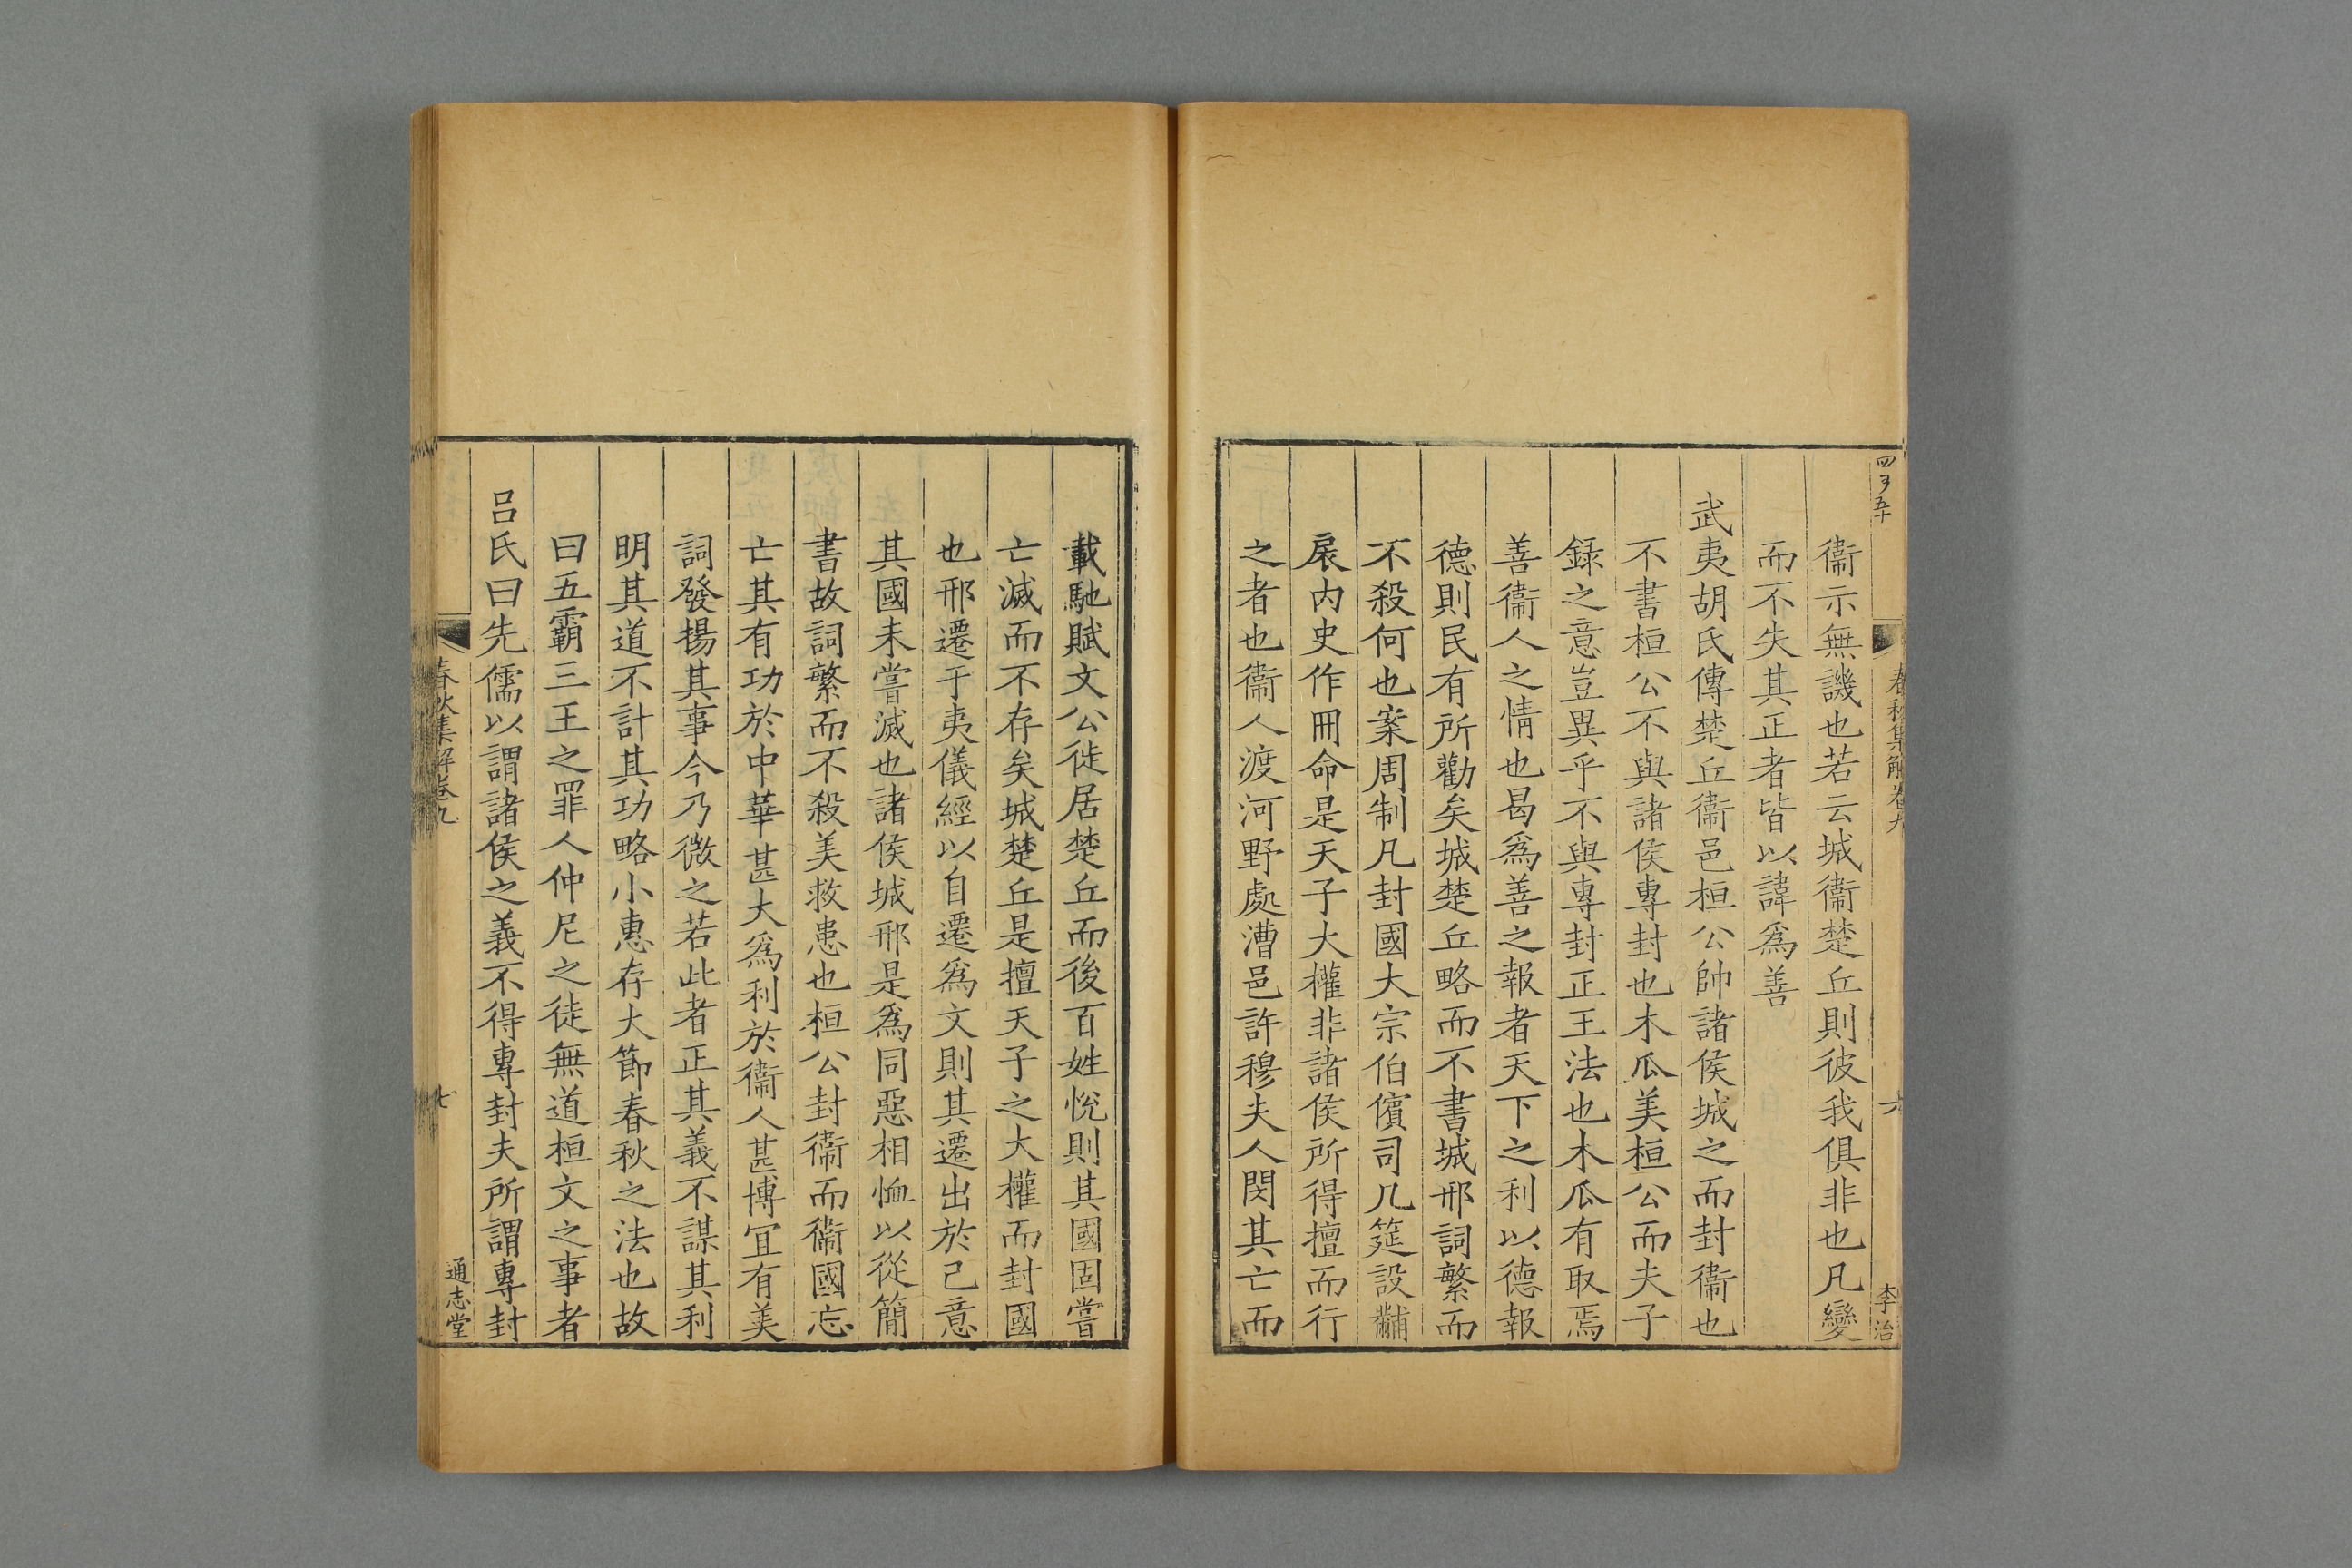 春秋集解卷九
六
李治
衞示無譏也若云城衞楚丘則彼我俱非也凡變
而不失其正者皆以諱爲善
武夷胡氏傳楚丘衞邑桓公帥諸侯城之而封衞也
不書桓公不與諸侯專封也木瓜美桓公而夫子
錄之意豈異乎不與專封正王法也木瓜有取焉
善衞人之情也曷爲善之報者天下之利以德報
德則民有所勸矣城楚丘略而不書城邢詞繁而
不殺何也案周制凡封國大宗伯儐司几筵設黼
扆内史作冊命是天子大權非諸侯所得擅而行
之者也衞人渡河野處漕邑許穆夫人閔其亡而
載馳賦文公徙居楚丘而後百姓悅則其國固嘗
亡滅而不存矣城楚丘是擅天子之大權而封國
也邢遷于夷儀經以自遷爲文則其遷出於己意
其國未嘗滅也諸侯城邢是爲同惡相恤以從簡
書故詞繁而不殺美救患也桓公封衞而衞國忘
亡其有功於中華甚大爲利於衞人甚博宜有美
詞發揚其事今乃微之若此者正其義不謀其利
明其道不計其功略小惠存大節春秋之法也故
曰五霸三王之罪人仲尼之徒無道桓文之事者
呂氏曰先儒以謂諸侯之義不得專封夫所謂專封
春秋集解卷九
七
通志堂